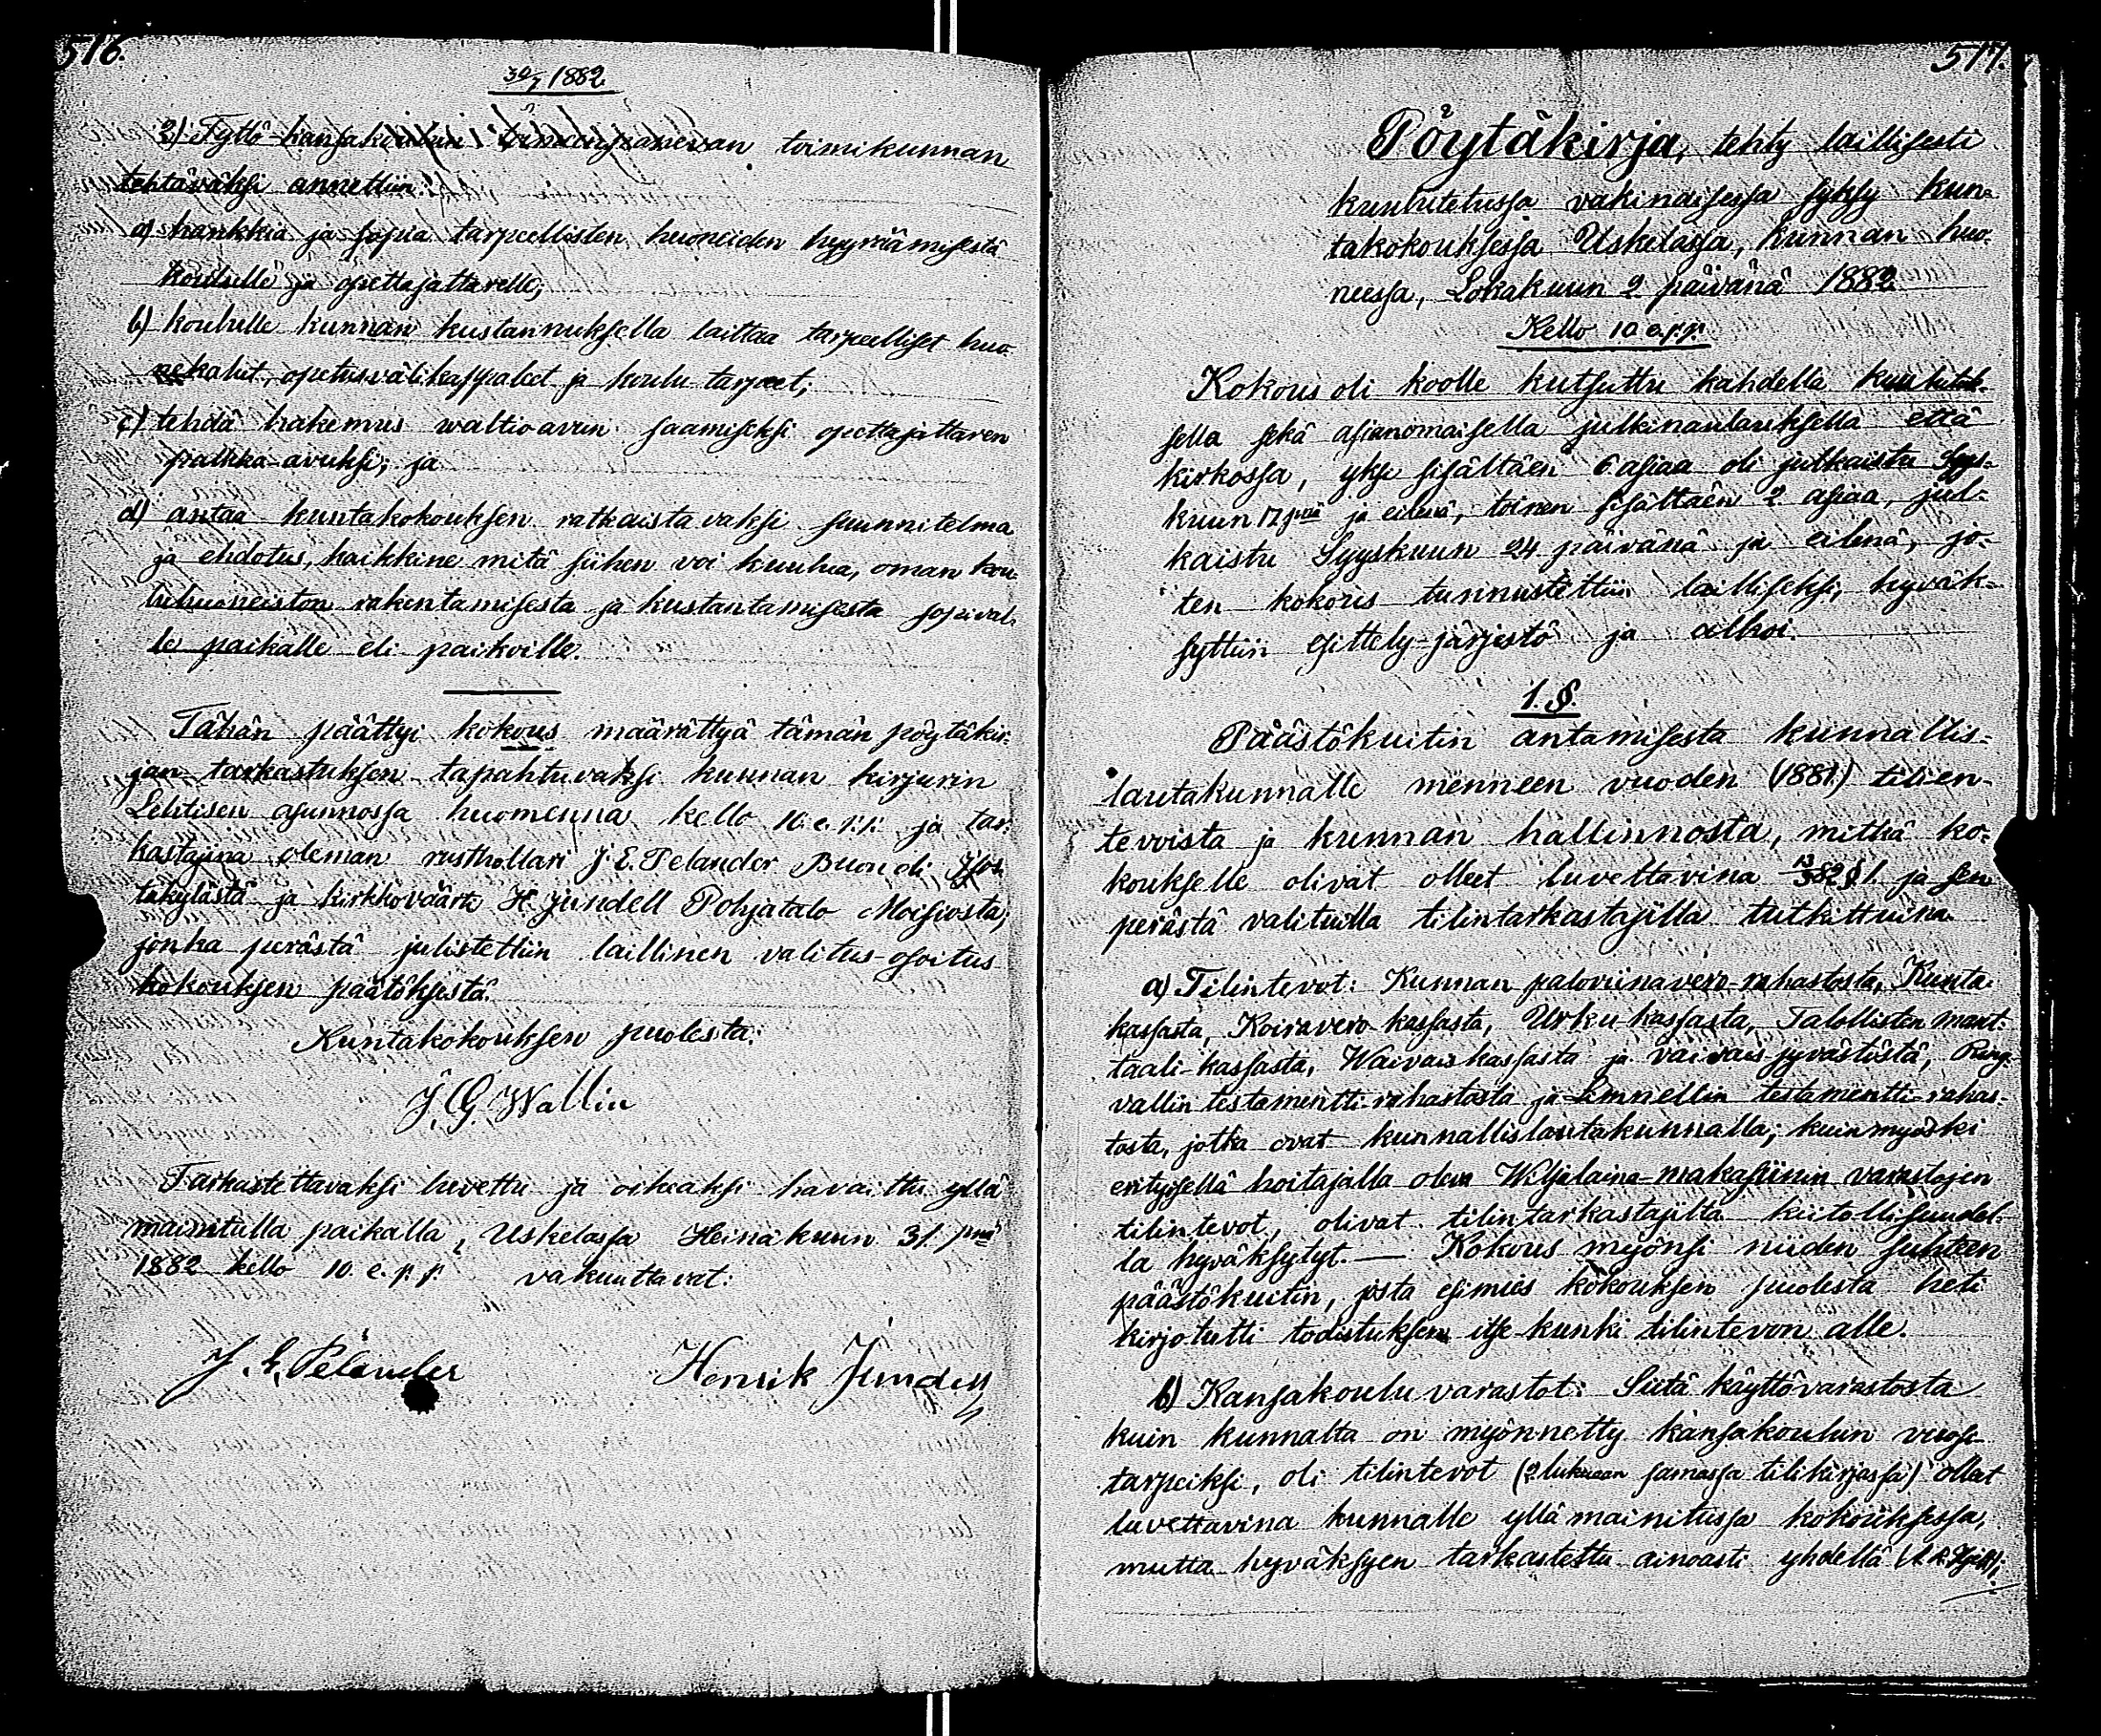 516.
30/7 1882
2) Tyttö-kansakoulun toimeenpanevan toimikunnan
tehtäväksi annettiin:
a) hankkia ja sopia tarpeellisten huoneiden hyyräämisestä
koululle ja opettajattarelle;
b) koululle kunnan kustannuksella laittaa tarpeelliset huo-
nekalut, opetusvälikappaleet ja koulu-tarpeet;
c) tehdä hakemus waltioavun saamiseksi opettajattaren
palkka-avuksi; ja
d) antaa kuntakokouksen ratkaistavaksi suunnitelma
ja ehdotus, kaikkine mitä siihen voi kuulua, oman kou-
luhuoneiston rakentamisesta ja kustantamisesta sopival-
le paikalle eli paikoille.
Tähän päättyi kokous määrättyä tämän pöytäkir-
jan tarkastuksen tapahtuvaksi kunnan kirjurin
Lehtisen asunnossa huomenna kello 10 e.p.p. ja tar-
kastajina oleman rusthollari J. E. Pelander Buondi Ison
takylästä ja kirkkoväärti H Jundell Pohjatalo Moisiosta;
jonka perästä julistettiin laillinen valitus-osoitus
kokouksen päätöksistä.
Kuntakokouksen puolesta:
J. G. Wallin
Tarkastettavaksi luvettu ja oikeaksi havaittu yllä
mainitulla paikalla, Uskelassa Heinäkuun 31. pnä
1882 kello 10. e. p. p. vakuuttavat:
J. E. Pelander Henrik Jundell
517.
Pöytäkirja, tehty laillisesti
kuulutetussa vakinaisessa syksy kun-
takokouksessa Uskelassa, kunnan huo-
neessa, Lokakuun 2 päivänä 1882
Kello 10 e.p.p.
Kokous oli koolle kutsuttu kahdella kuulutuk-
sella sekä asianomaisella julkinaulauksella että
kirkossa, yksi sisältäen 6 asiaa oli julkaistu Syys-
kuun 17 pnä ja eilenä, toinen sisältäen 2 asiaa, jul-
kaistu Syyskuun 24 päivänä ja eilenä, jo-
ten kokous tunnustettiin lailliseksi, hyväk-
syttiin esittely-järjestö ja alkoi.
1. §.
Päästökuitin antamisesta kunnallis-
lautakunnalle menneen vuoden (1881) tilien-
tevoista ja kunnan hallinnosta, mitkä ko-
koukselle olivat olleet luvettavina 13/3 82 § 1. ja sen
perästä valituilla tilintarkastajilla tutkittuina.
a) Tilintevot: Kunnan paloviinavero-rahastosta, Kunta-
kassasta, Koiravero-kassasta, Urku-kassasta, Talollisten mant-
taali-kassasta, Waivais kassasta ja vaivais jyvästöstä, Ring-
vallin testamentti-rahastosta ja Lemnellin testamentti-rahas-
tosta, jotka ovat kunnallislautakunnalla; kuin myöski
erityisellä hoitajalla olevan Wiljalaina-makasiinin varastojen
tilintevot, olivat tilintarkastajilta kiitollisuudel-
la hyväksytyt. — Kokous myönsi niiden suhteen
päästökuitin, josta esimies kokouksen puolesta heti
kirjotutti todistuksen itse kunki tilintevon alle.
b) Kansakoulu varastot: Siitä käyttövarastosta
kuin kunnalta on myönnetty kansakoulun vuosi-
tarpeiksi, oli tilintevot (2 lukuaan samassa tilikirjassa) ollut
luvettavina kunnalle yllä mainitussa kokouksessa,
mutta hyväksyen tarkastettu ainoasti yhdellä